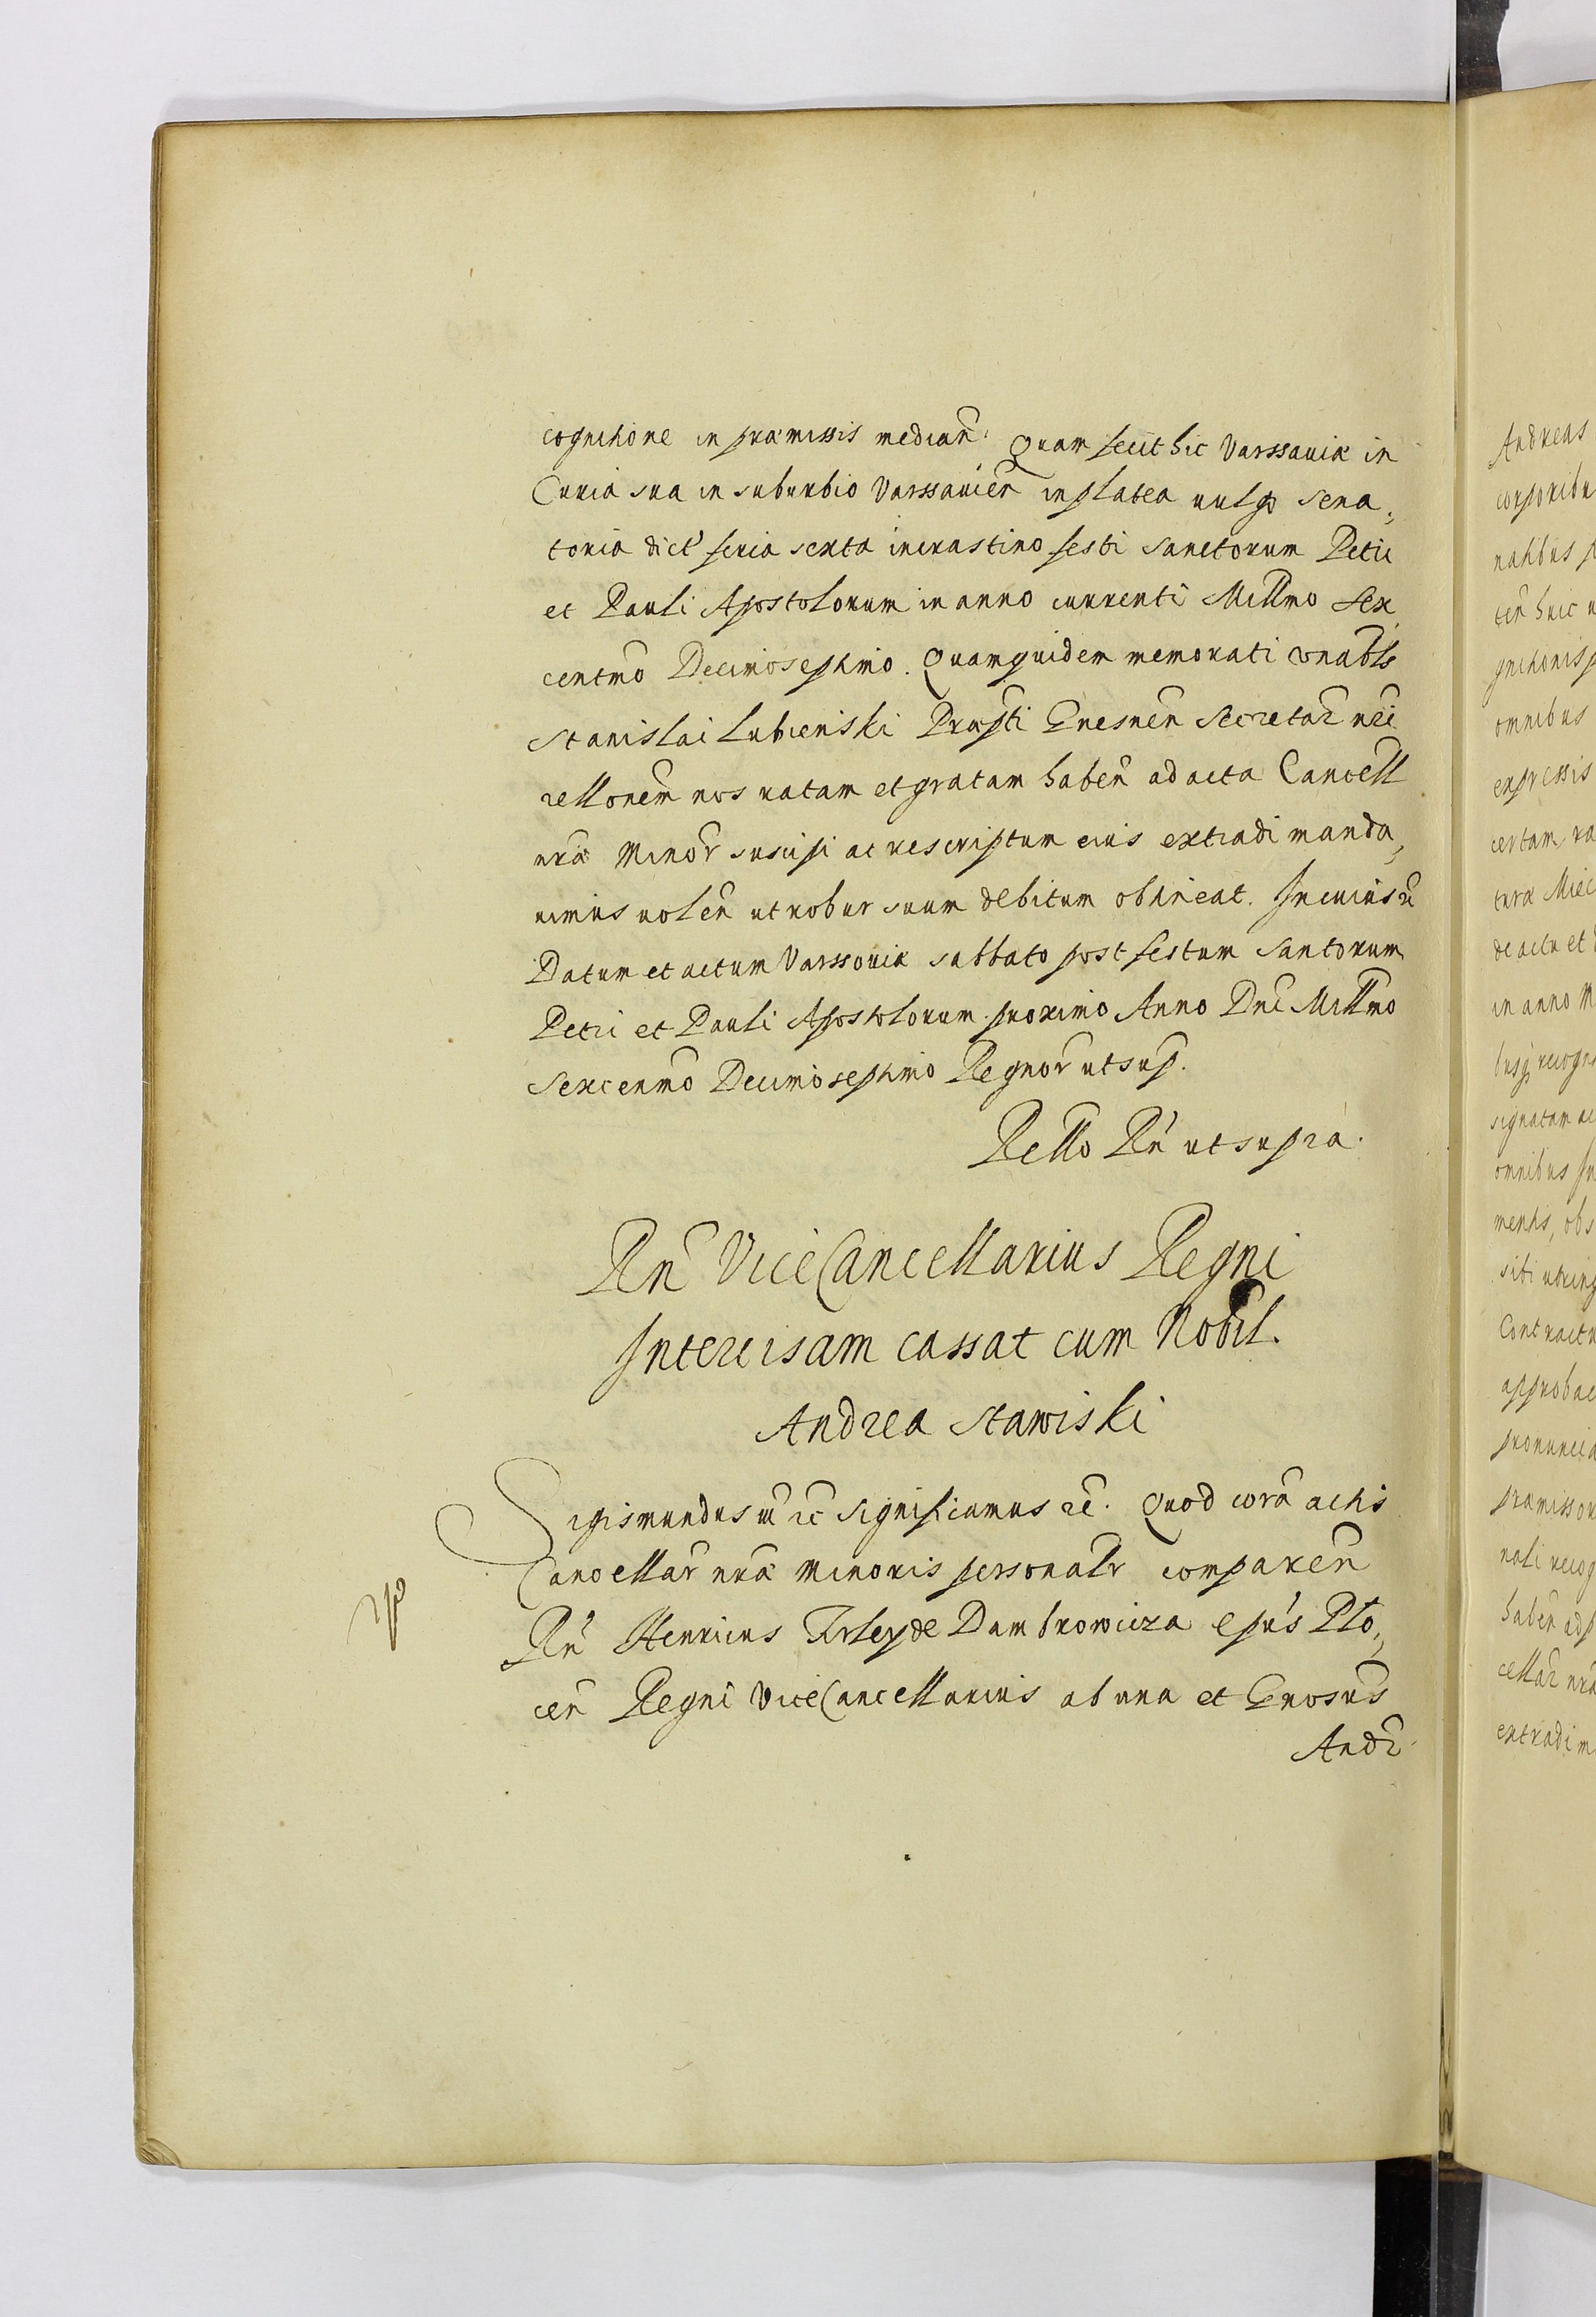 cognitione in præmissis median̄. Quam fecit hic Varssaviæ in
Curia sua in suburbio Varssavien̄ in platea vulgo Sena,,
toria dict' feria sexta incrastino festi Sanctorum Petri
et Pauli Apostolorum in anno currenti Millmo Sex
centmo Decimoseptimo. Quamquidem memorati vnabls
Stanislai Lubienski Præpti Gnesnen̄ Secretar̄ nri
rellonem nos ratam et gratam haben̄ ad acta Cancell
nræ Minor̄ suscipi ac rescriptum eius extradi manda,,
uimus uolen̄ ut robur suum debitum obtineat. In cuius r̄
Datum et actum Varssoviæ sabbato post festum Santorum
Petri et Pauli Apostolorum proximo Anno Dni Millmo
Sexcenmo Decimoseptimo Regnor̄ ut sup.
Rello Rn̄ ut supra.
Rn̄ ViceCancellarius Regni
Intercisam cassat cum Nobil.
Andrea Stawiski
Sigismundus rc Significamus rc. Quod corā actis
Cancellar̄ nræ Minoris personalr comparen̄
Rn̄ Henricus Firley de Dambrowicza Epūs Plo,,
cen̄ Regni ViceCancellarius ab una et Gnosus
Andr
Andreas
corporibu
nalibus p
ten̄ huic
gnitionis p
omnibus
expressis
certam, ra
tura Miec
de actu et
in anno M
busq recogn
signatam ac
omnibus
mentis, obs
sibi utrinq
Contractu
approbac
pronuncia
præmissor
nali recog
haben̄ adp
cellar̄ nræ
extradi m